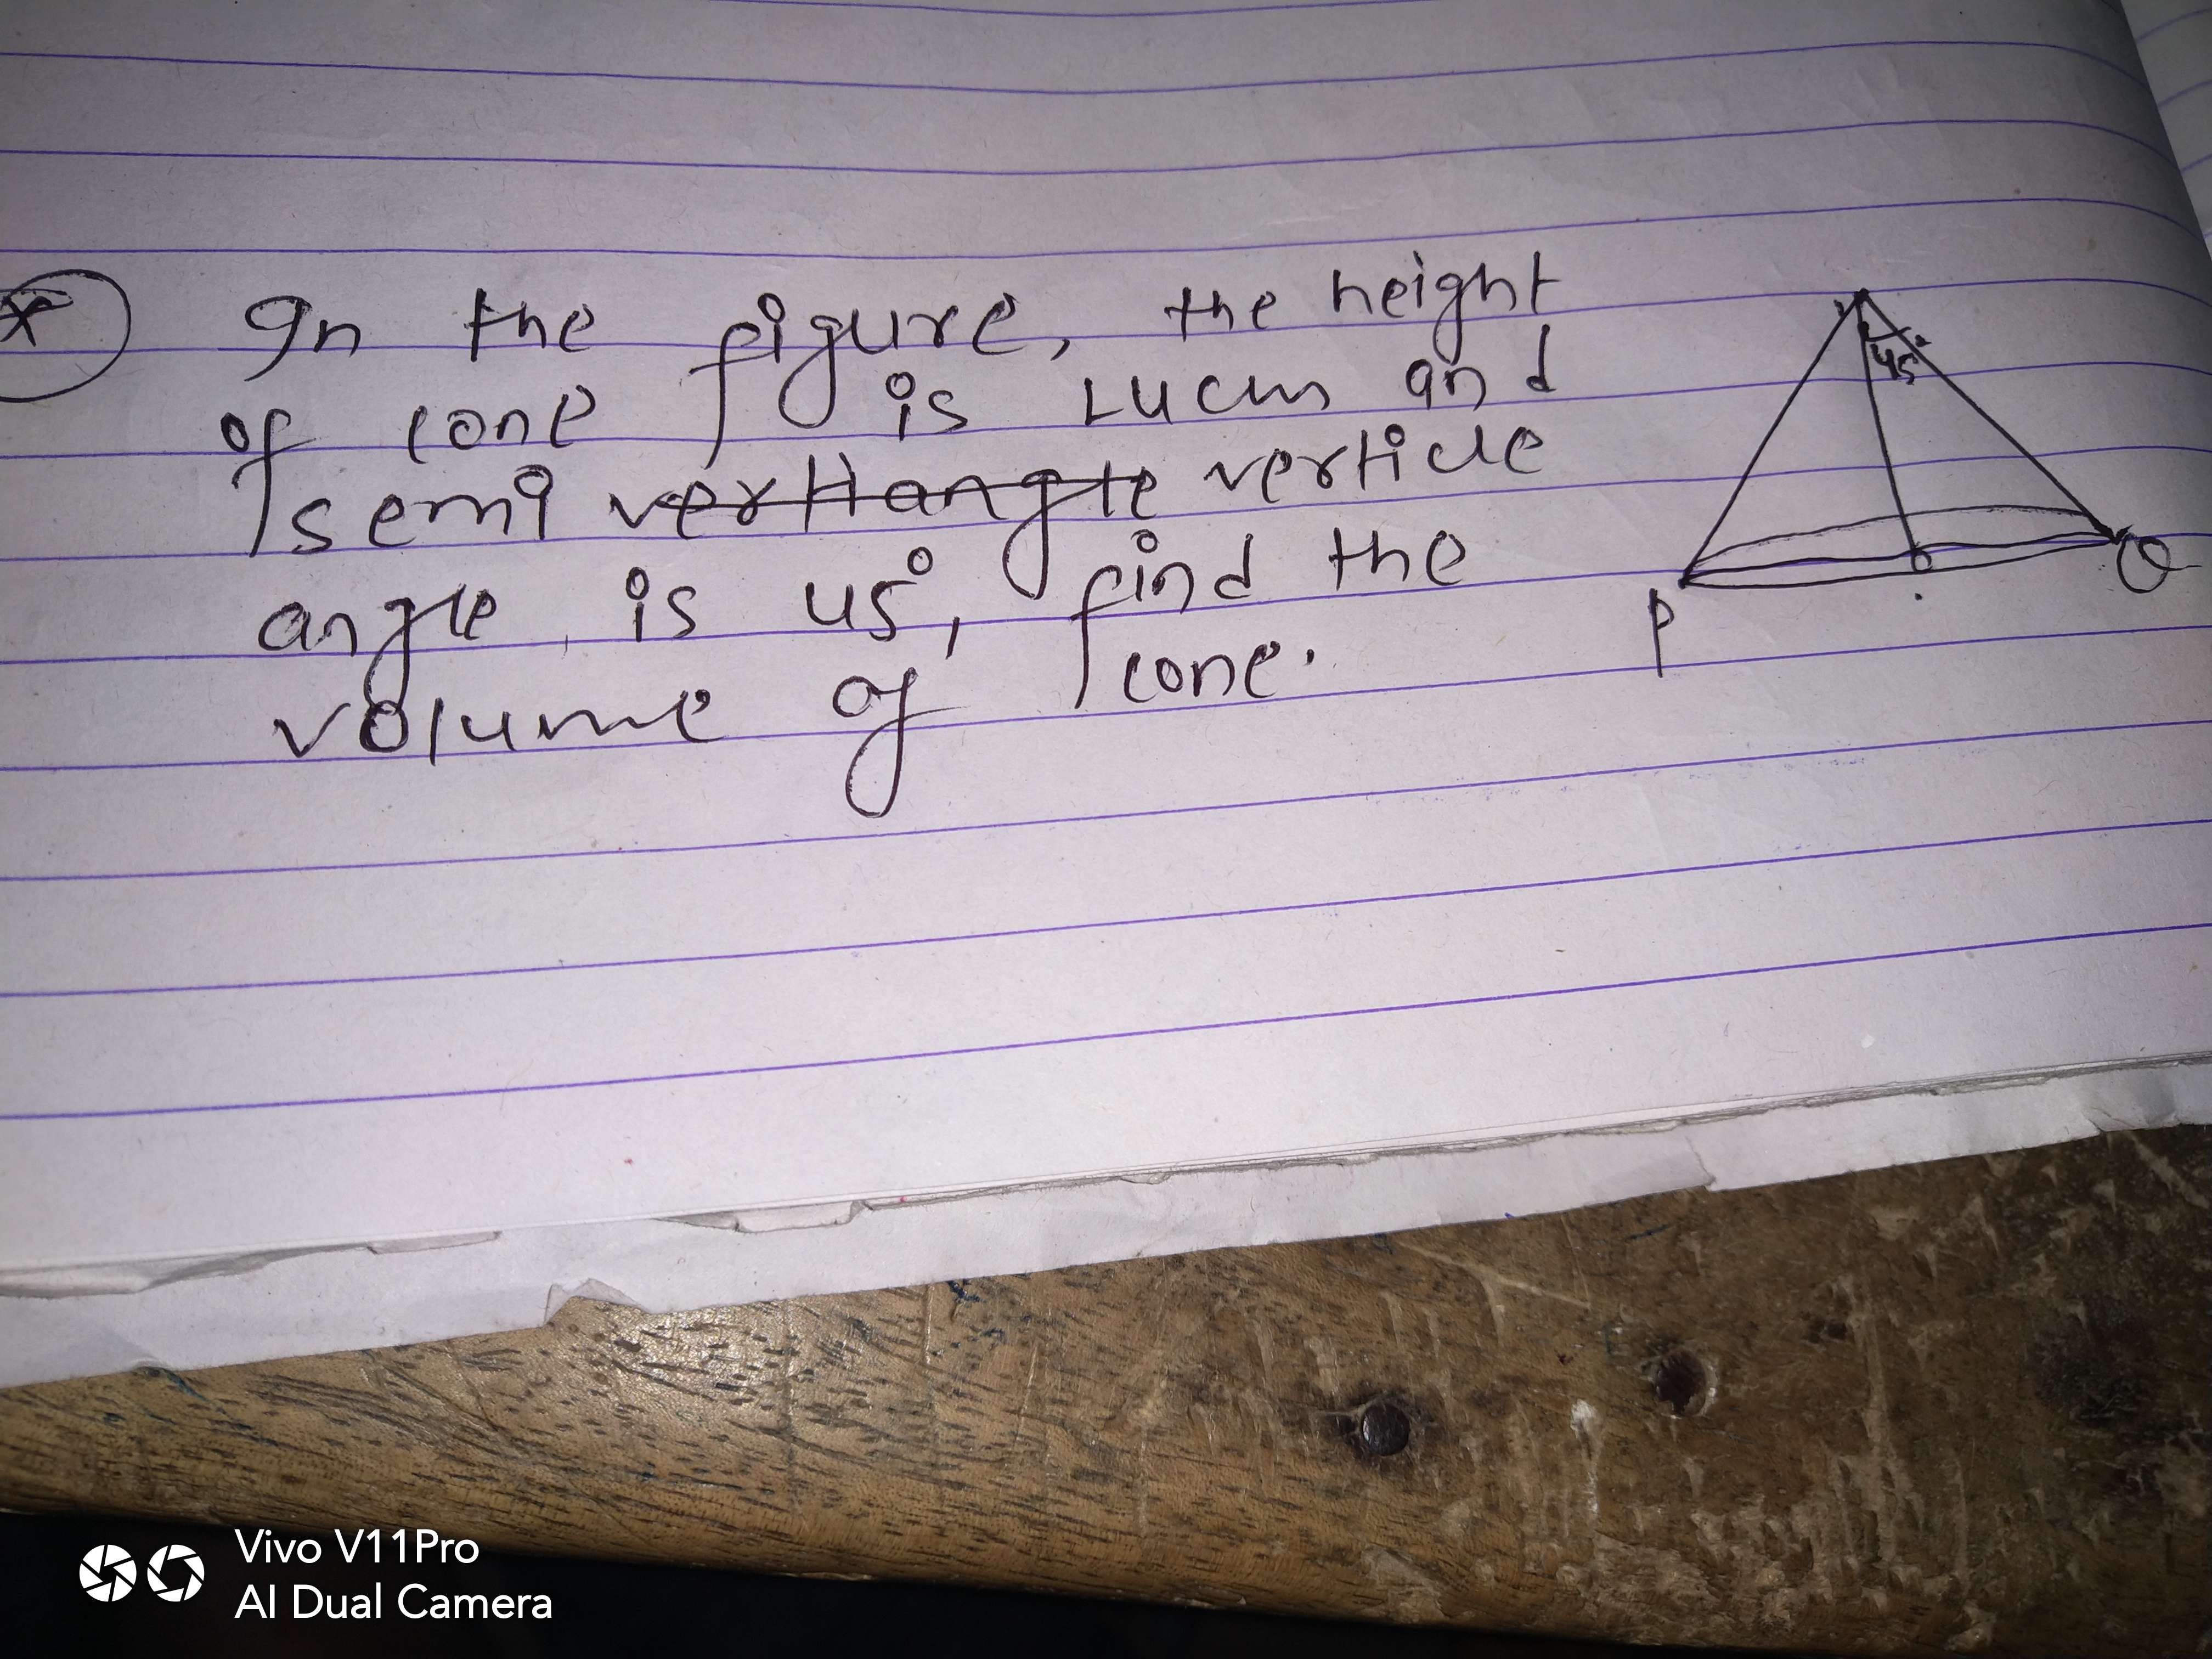 In the figure, the height
of cone is 14 cm and
semi vertangle verticle
angle is 45°, find the
volume of cone.
45°
P
O
Q
Vivo V11Pro
AI Dual Camera